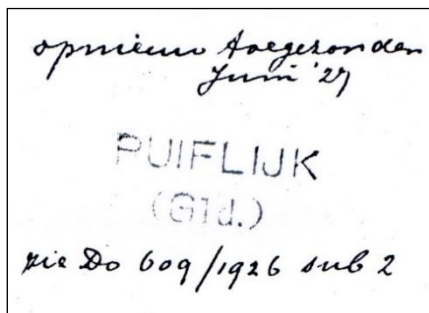 opnieuw toegezonden
Juni '27
PUIFLIJK
(Gld.)
zie Do 609/1926 sub 2